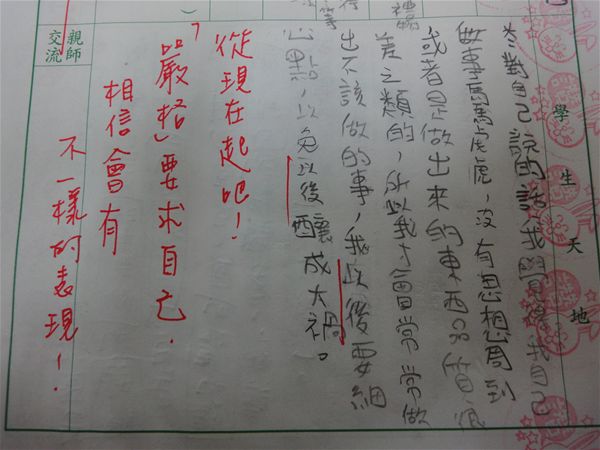 學生天地
對自己說的話,我覺得我自己
做事馬馬虎虎,沒有思想周到
或者是做出來的東西品質很
差之類的,所以我才會常常做
出不該做的事,我以後要細
心點,以免以後釀成大禍。
從現在起吧!
「嚴格」要求自己.
相信會有
不一樣的表現!
親師交流